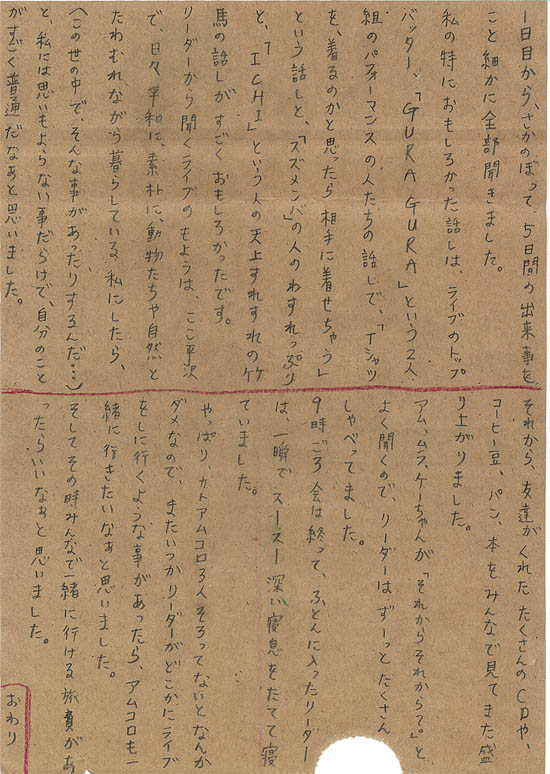 一日目から、さかのぼって、5日間の出来事を
こと細かに全部聞きました。
私の特におもしろかった話しは、ライブのトップ
バッター、「GURAGURA」という2人
組のパフォーマンスの人たちの話しで、「Tシャツ
を、着るのかと思ったら相手に着せちゃう」
という話しと、「スズメンバ」の人のわすれっぷり
と、「ICHI」という人の天上すれすれの竹
馬の話しがすごくおもしろかったです。
リーダーから聞くライブのもようは、ここ平沢
で、日々平和に、素朴に、動物たちや自然と
たわむれながら暮らしている、私にしたら、
(この世の中で、そんな事があったりするんだ…)
と、私には思いもよらない事だらけで、自分のこと
がすごく普通だなぁと思いました。
それから、友達がくれたたくさんのCDや、
コーヒー豆、パン、本をみんなで見てまた盛
り上がりました。
アム、ムラ、ケーちゃんが「それからそれから?。」と
よく聞くので、リーダーはずーっとたくさん
しゃべってました。
9時ごろ会は終って、ふとんに入ったリーダー
は、一瞬でスースー深い寝息をたてて寝
ていました。
やっぱり、カトアムコロ3人そろってないとなんか
ダメなので、またいつかリーダーがどこかにライブ
をしに行くような事があったら、アムコロも一
緒に行きたいなぁと思いました。
そしてその時みんなで一緒に行ける旅費があ
ったらいいなぁと思いました。
おわり